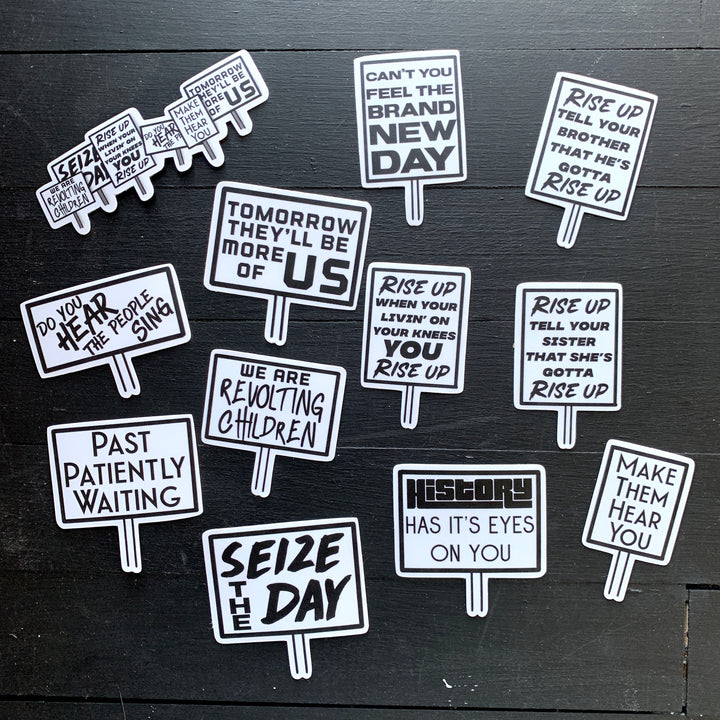 TOMORROW
THEY'LL BE
MORE
OF US
MAKE
THEM
HEAR
YOU
DO YOU
HEAR
THE P
RISE UP
WHEN YOUR
LIVIN' ON
YOUR KNEES
YOU
RISE UP
SEIZE
DAY
WE ARE
REVOLTING
CHILDREN
CAN'T YOU
FEEL THE
BRAND
NEW
DAY
RISE UP
TELL YOUR
BROTHER
THAT HE'S
GOTTA
RISE UP
TOMORROW
THEY'LL BE
MORE
OF US
DO YOU
HEAR
THE PEOPLE
SING
RISE UP
WHEN YOUR
LIVIN' ON
YOUR KNEES
YOU
RISE UP
RISE UP
TELL YOUR
SISTER
THAT SHE'S
GOTTA
RISE UP
WE ARE
REVOLTING
CHILDREN
PAST
PATIENTLY
WAITING
HISTORY
HAS IT'S EYES
ON YOU
MAKE
THEM
HEAR
YOU
SEIZE
THE DAY